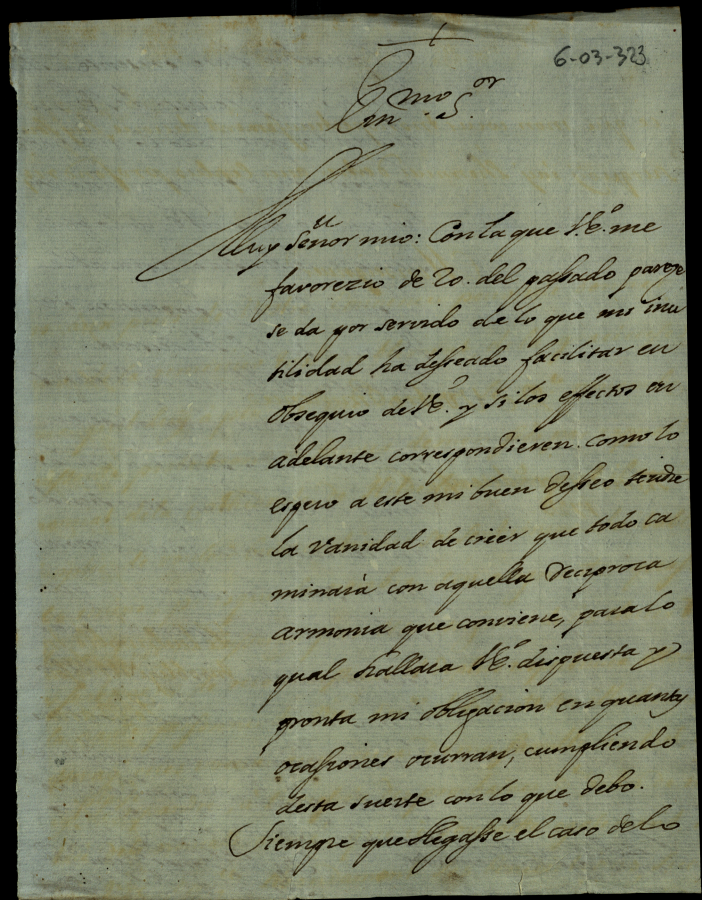 6-03-323
+
Em.mo S.or
Muy Señor mio: Con la que V.E.a me
favorezio de 20. del passado pareze
se da por servido de lo que mi inu
tilidad ha desseado facilitar en
obsequio de V.E.a y si los effectos en
adelante correspondieren como lo
espero a este mi buen desseo tendre
la vanidad de creer que todo ca
minara con aquella reciproca
armonia que conviene, para lo
qual hallara V.E.a dispuesta y
pronta mi obligacion en quantas
ocassiones ocurran, cumpliendo
desta suerte con lo que debo.
Siempre que llegasse el caso de lo